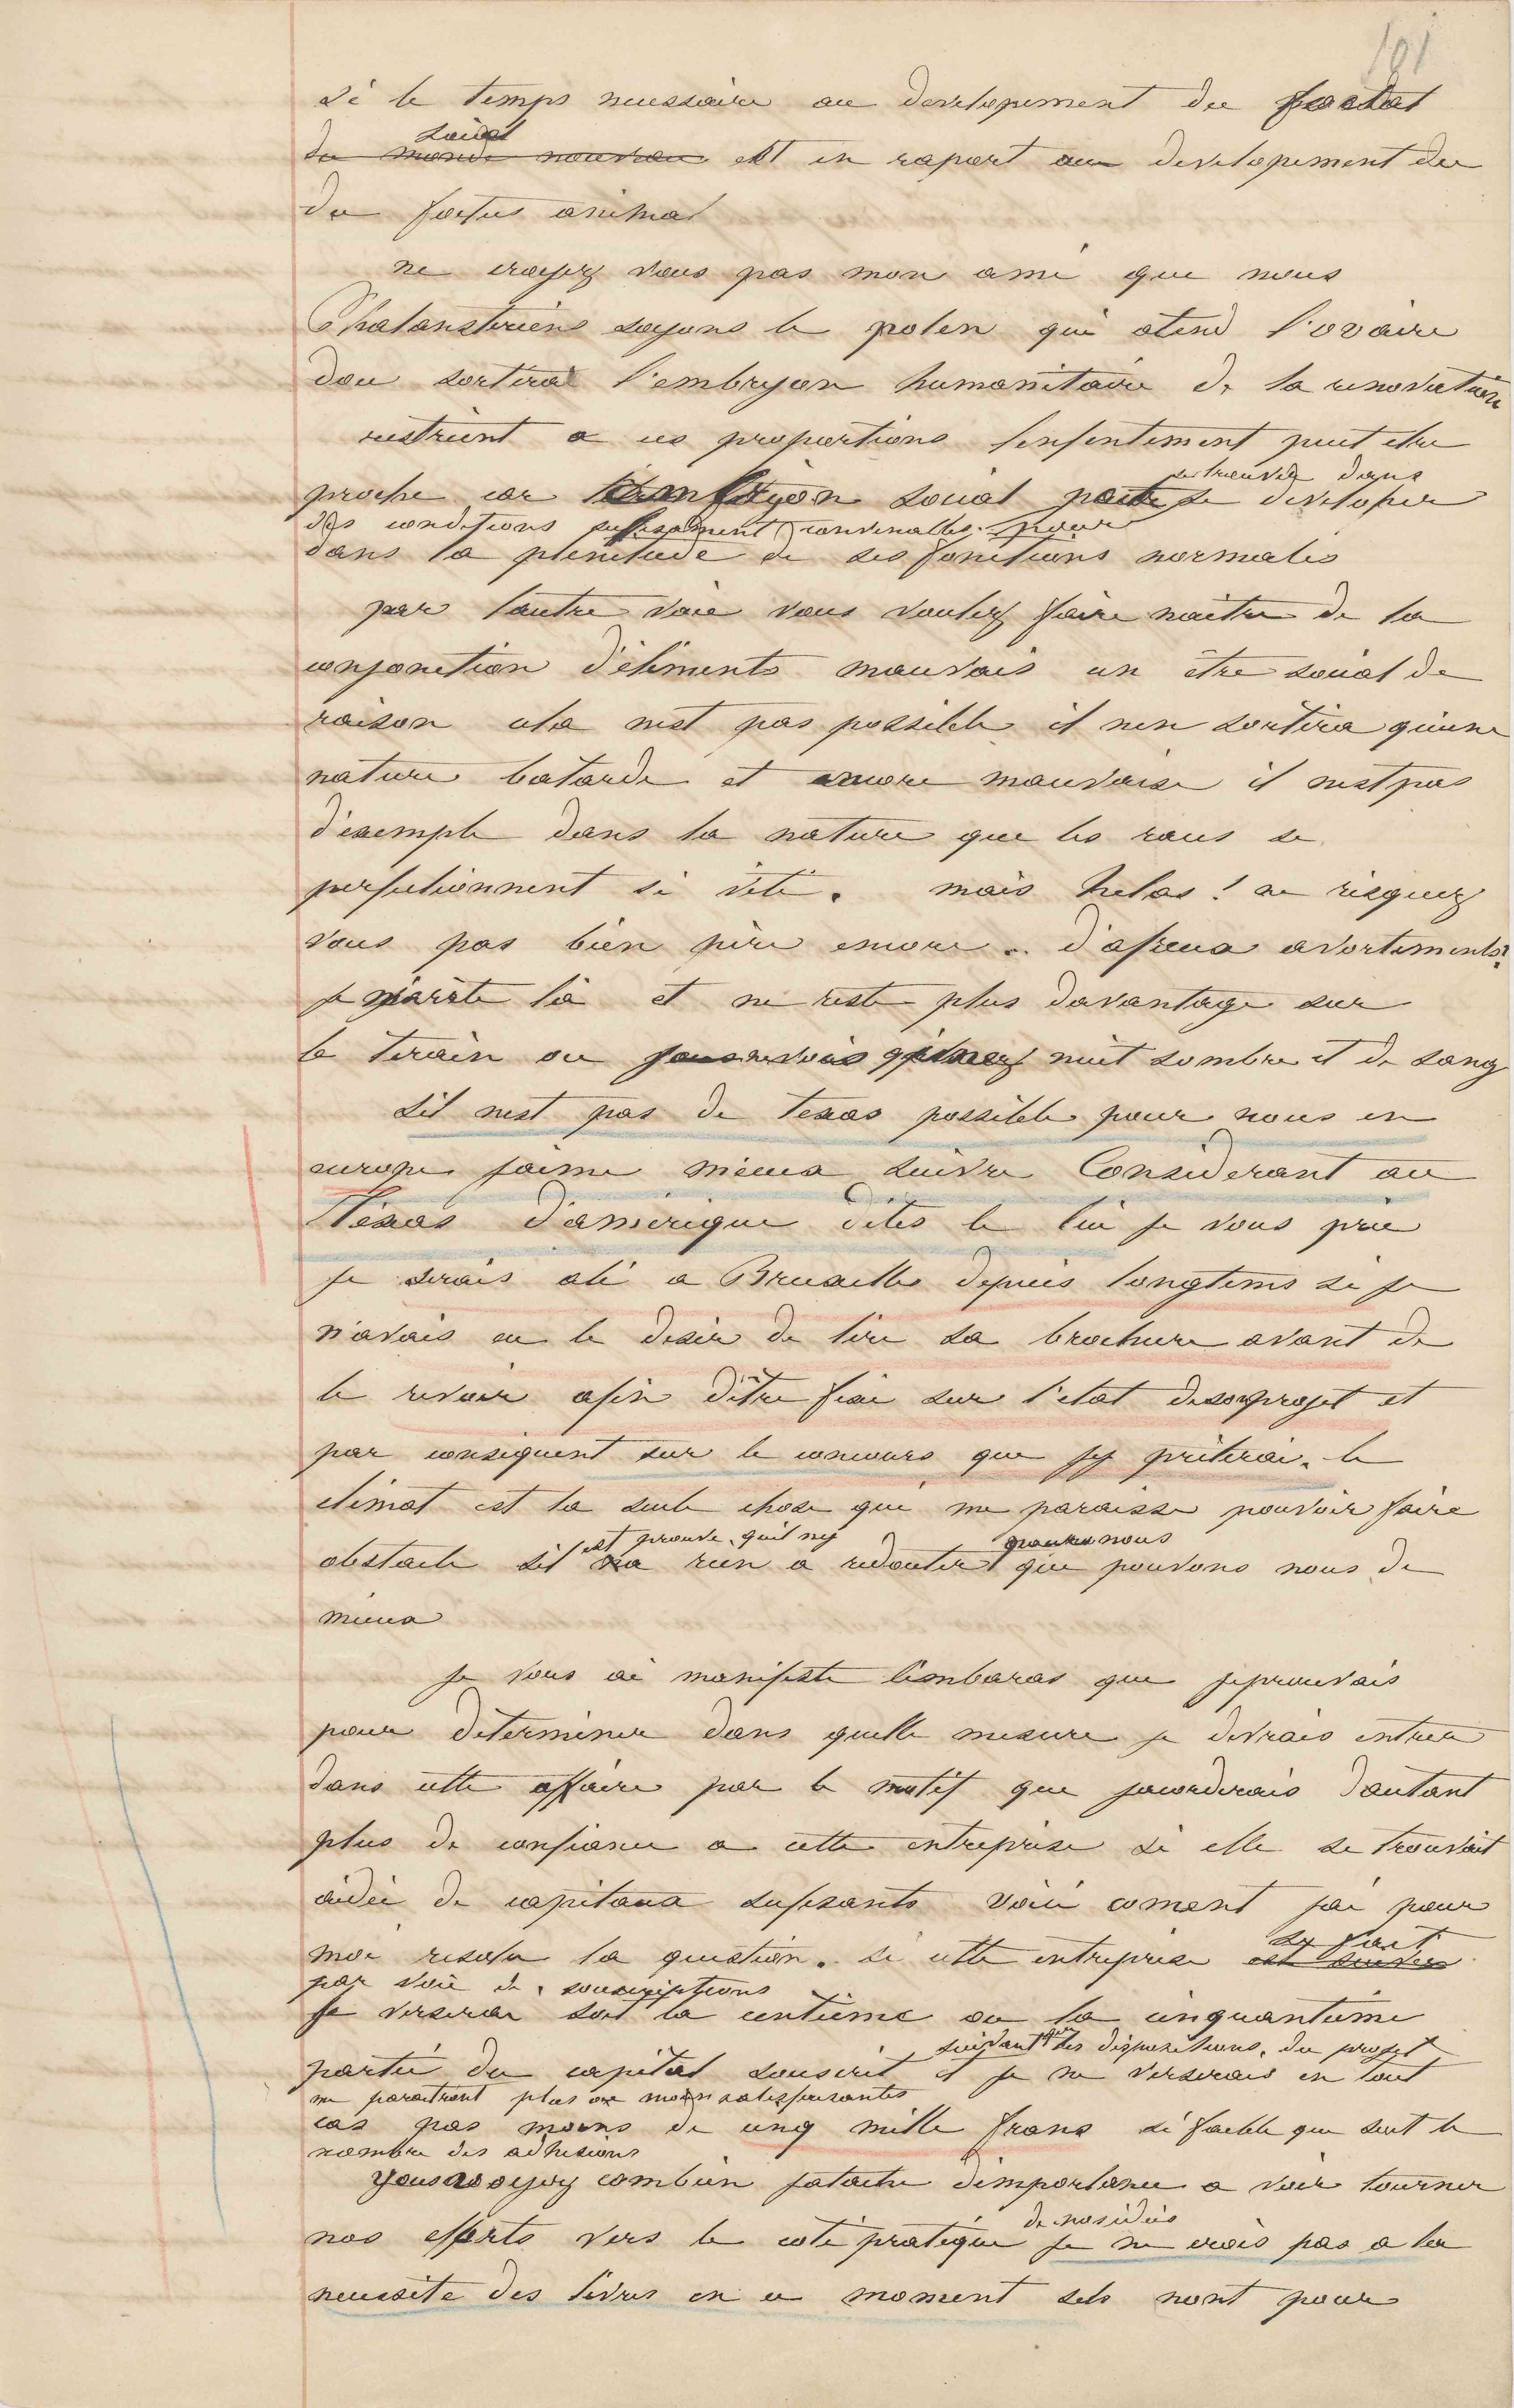 101
si le temps necessaire au developement du foetat
social
du monde nouveau est en raport au developement du
du foetus animal
ne croyez vous pas mon ami que nous
Phalansteriens soyons le polen qui atend l'ovaire
dou sortira l'embryon humanitaire de la renovation
restrient a ces proportions lenfentement peut etre
se trouver dans
proche car lembryon social peut se developer
des conditions sufisament convenables pour
dans la plenitude de ses fonctions normales
par lautre voie vous voulez faire naitre de la
conjonction d'eléments mauvais un être social de
raison cela nest pas possible il nen sortira qu'une
nature batarde et encore mauvaise il nest pas
d'exemple dans la nature que les races se
perfectionnent si vite. mais helas! ne risquez
vous pas bien pire encore .. d'afreux avortements?
je m'arête là et ne reste plus davantage sur
le terain ou nuit sombre et de sang
sil nest pas de Texas possible pour nous en
europe jaime mieux suivre Considerant au
Texas d'amérique dites le lui je vous prie
je serais alé a Bruxelles depuis longtems si je
n'avais eu le desir de lire sa brochure avant de
le revoir afin d'être fixé sur l'etat de son projet et
par consequent sur le concours que jy prêterai. le
climat est la seule chose qui me paraisse pouvoir faire
est prouvé quil ny pour nous
obstacle sil a rien a redouter que pouvons nous de
mieux
je vous ai manifesté l'embaras que jeprouvais
pour déterminer dans quelle mesure je devrais entrer
dans cette affaire par le motif que jacorderais dautant
plus de confiance a cette entreprise si elle se trouvait
aidée de capitaux sufisants voici coment jai pour
se fait
moi resolu la question. si cette entreprise est suivie
par voie de souscriptions
je verserai soit la centieme ou la cinquantieme
suivant que les dispositions du projet
partie du capital souscrit et je ne verserais en tout
me paraitront plus ou moins satisfaisantes
cas pas moins de cinq mille francs si faible que soit le
nombre des adhesions
vous voyez combien jatache d'importance a voir tourner
de nos idées
nos efforts vers le coté pratique je ne crois pas a la
necessite des livres en ce moment sils nont pour